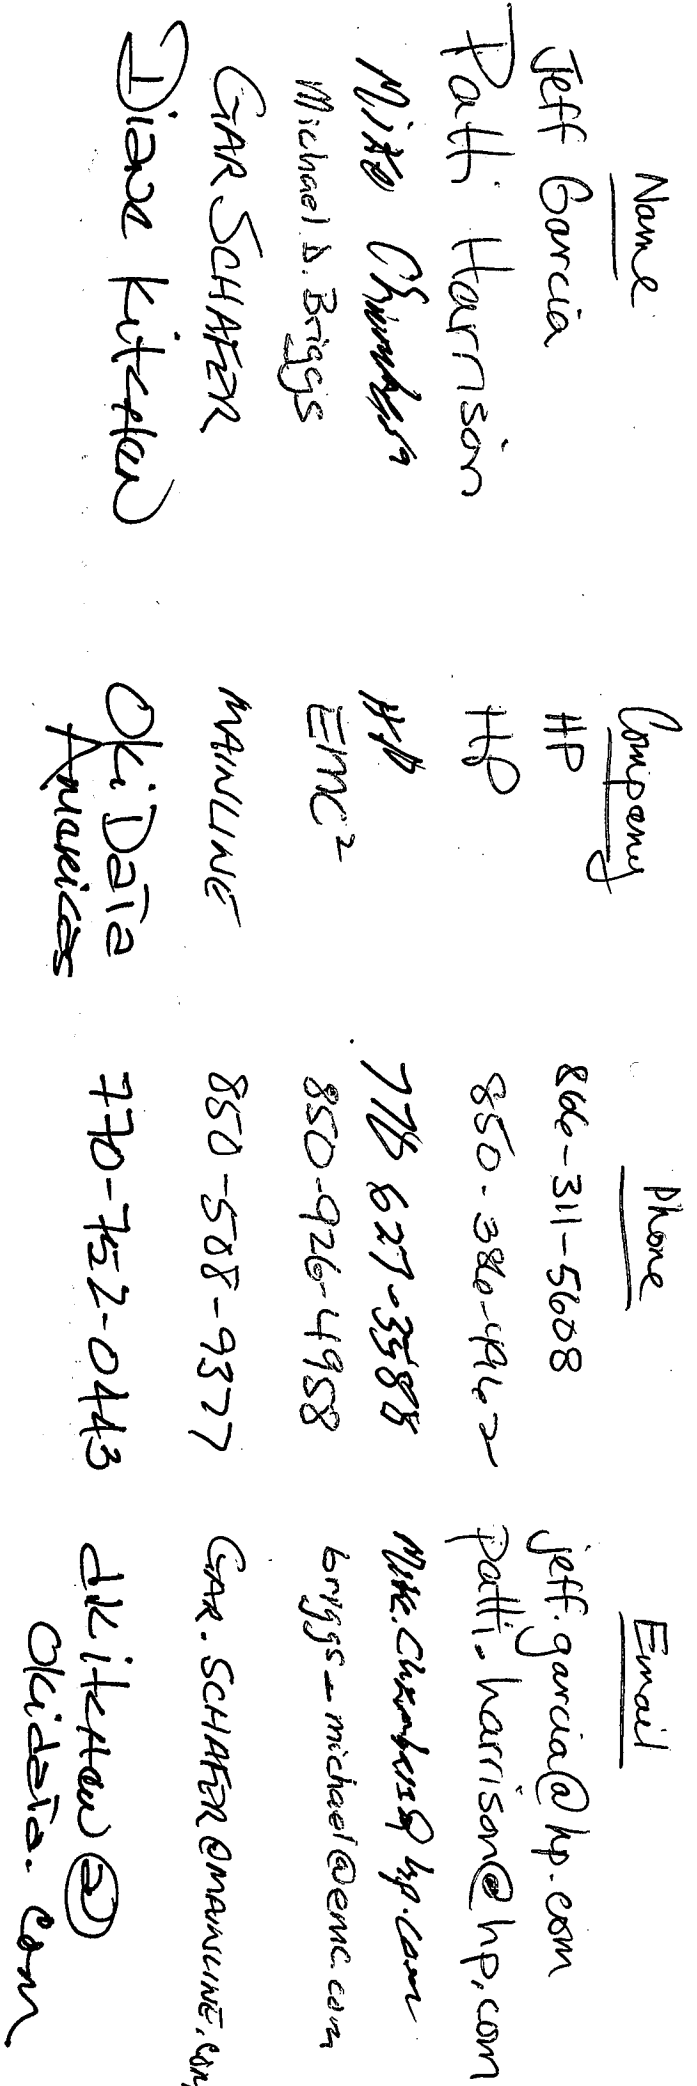 Name Company Phone Email
Jeff Garcia HP 866-311-5608 jeff.garcia@hp.com
Patti Harrison HP 850-386-4962 patti.harrison@hp.com
Mike HP 627-3588
Michael D. Briggs EMC² 850-926-4958 briggs_michael@emc.com
GAR SCHAFER MAINLINE 850-508-9377 GAR.SCHAFER@MAINLINE.COM
Diane Kitchen Oki Data 770-752-0443 dkitchen@
Americas okidata.com